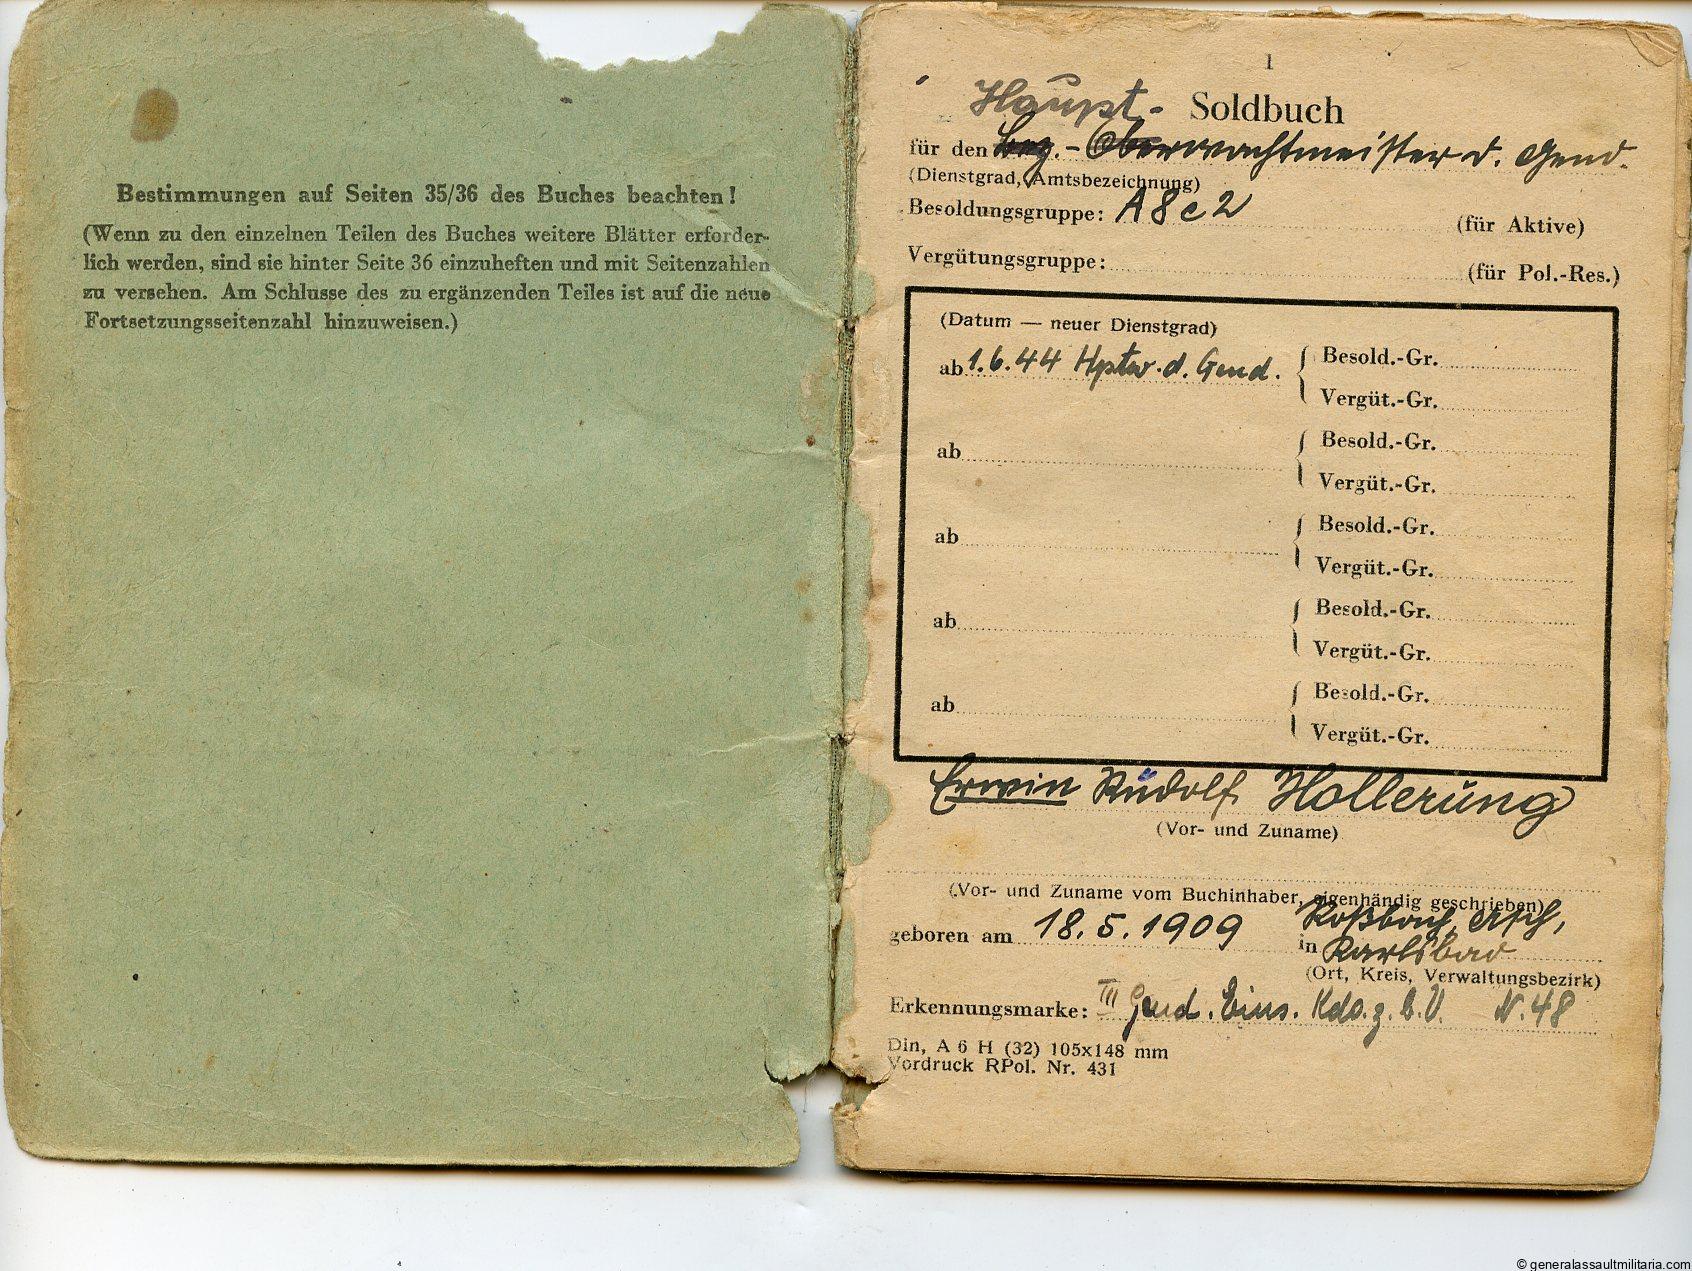 Bestimmungen auf Seiten 35/36 des Buches beachten!
(Wenn zu den einzelnen Teilen des Buches weitere Blätter erforder-
lich werden, sind sie hinter Seite 36 einzuheften und mit Seitenzahlen
zu versehen. Am Schlusse des zu ergänzenden Teiles ist auf die neue
Fortsetzungsseitenzahl hinzuweisen.)
1
Haupt- Soldbuch
für den Bez.-Oberwachtmeister d. Gend.
(Dienstgrad, Amtsbezeichnung)
Besoldungsgruppe: A8c2 (für Aktive)
Vergütungsgruppe: (für Pol.-Res.)
(Datum — neuer Dienstgrad)
ab 1.6.44 Hptw. d. Gend. Besold.-Gr.
Vergüt.-Gr.
ab Besold.-Gr.
Vergüt.-Gr.
ab Besold.-Gr.
Vergüt.-Gr.
ab Besold.-Gr.
Vergüt.-Gr.
ab Besold.-Gr.
Vergüt.-Gr.
Erwin Rudolf Hollerung
(Vor- und Zuname)
(Vor- und Zuname vom Buchinhaber, eigenhändig geschrieben)
geboren am 18.5.1909 in Roßbach, Asch,
Karlsbad
(Ort, Kreis, Verwaltungsbezirk)
Erkennungsmarke: III Gend. Eins. Kdo. z. b. V. N. 48
Din, A 6 H (32) 105x148 mm
Vordruck RPol. Nr. 431
© generalassaultmilitaria.com